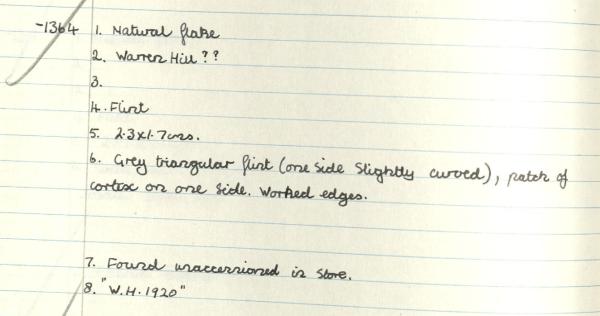 -1364 1. Natural flake
2. Warren Hill??
3.
4. Flint
5. 2.3x1.7cms.
6. Grey triangular flint (one side slightly curved), patch of
cortex on one side. Worked edges.
7. Found unaccessioned in store.
8. "W.H. 1920"